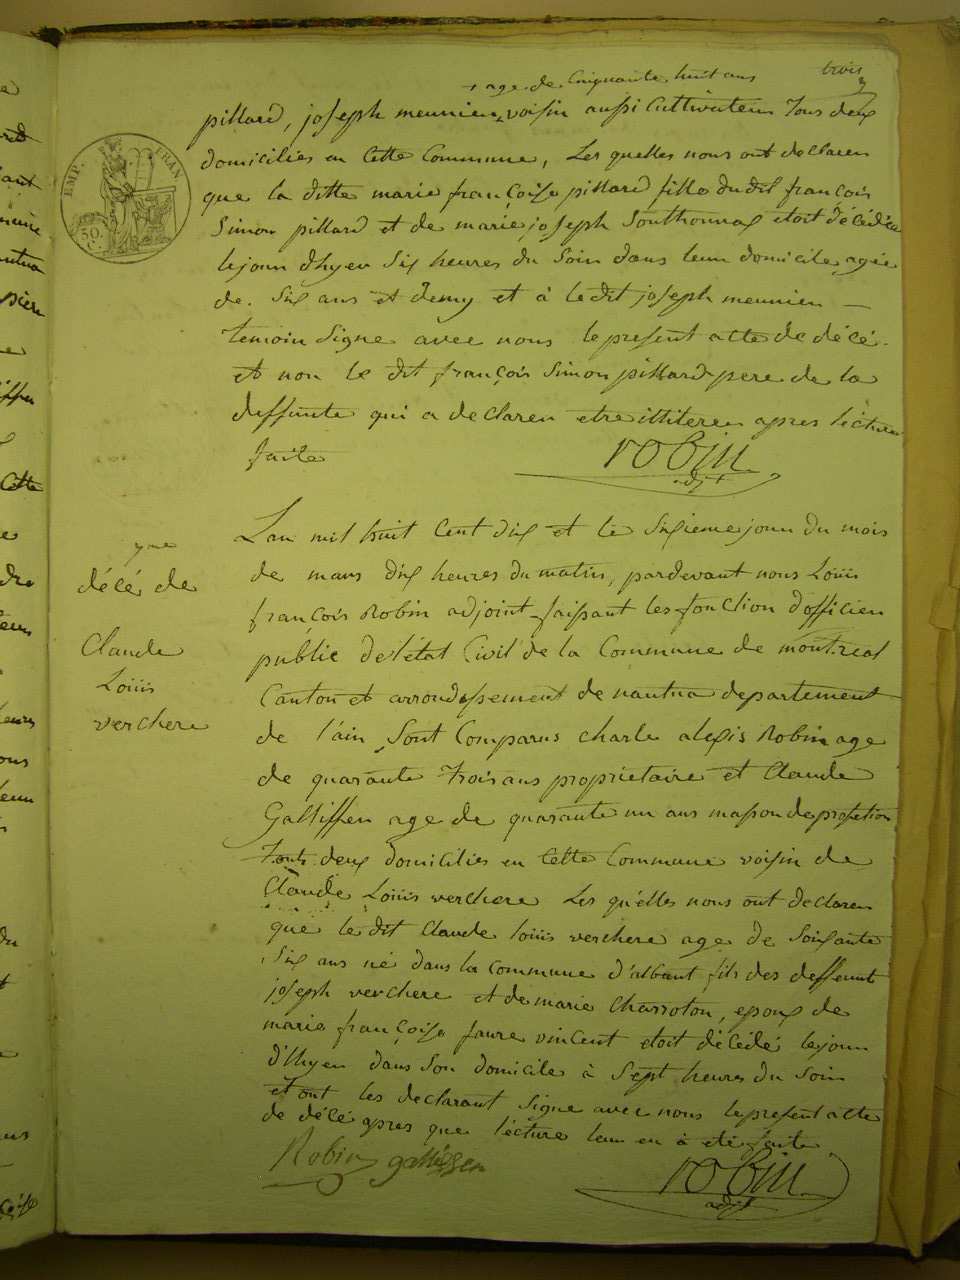 trois
3
+ age de Cinquante huit ans
pillard, joseph meunier + voisin aussi Cultivateur Tous deux
domiciliés en Cette Commune, Les quelles nous ont declaren
que la ditte marie françoise pillard fille du dit françois
Simon pillard et de marie joseph Southonnax etoit décédée
le jour d'hyer Six heures du Soir dans leur domicile, agée
de. Six ans et demy et à le dit joseph meunier —
temoin Signe avec nous le present acte de décé.
et non le dit françois Simon pillard pere de la
deffunte qui a declaren etre illiteren apres lecture
faite
robin
adjt
EMP. FRAN
50
C.
décé de
Claude
Loüis
verchere
Lan mil huit Cent dix et le Sixieme jour du mois
de mars dix heures du matin, pardevant nous Loüis
françois Robin adjoint faissant les fonction d'officier
public de l'état Civil de la Commune de montreal
Canton et arrondissement de nantua departement
de l'ain, Sont Comparus charle alexis Robin age
de quarante Trois ans proprietaire et Claude
Galliffen age de quarante un ans masson de profetion
Tout deux domiciliés en Cette Commune voisin de
Claude Loüis verchere Les qu'elles nous ont declaren
que le dit Claude loüis verchere age de Soixante
Six ans né dans la Commune d'albant fils des deffunt
joseph verchere et de marie Charroton, epoux de
marie françoise faure vincent etoit décédé le jour
d'hyer dans Son domicile à Sept heures du Soir
et ont les declarant Signe avec nous le present acte
de décé apres que lécture leur en à eté faite
Robin galliffen
robin
adjt